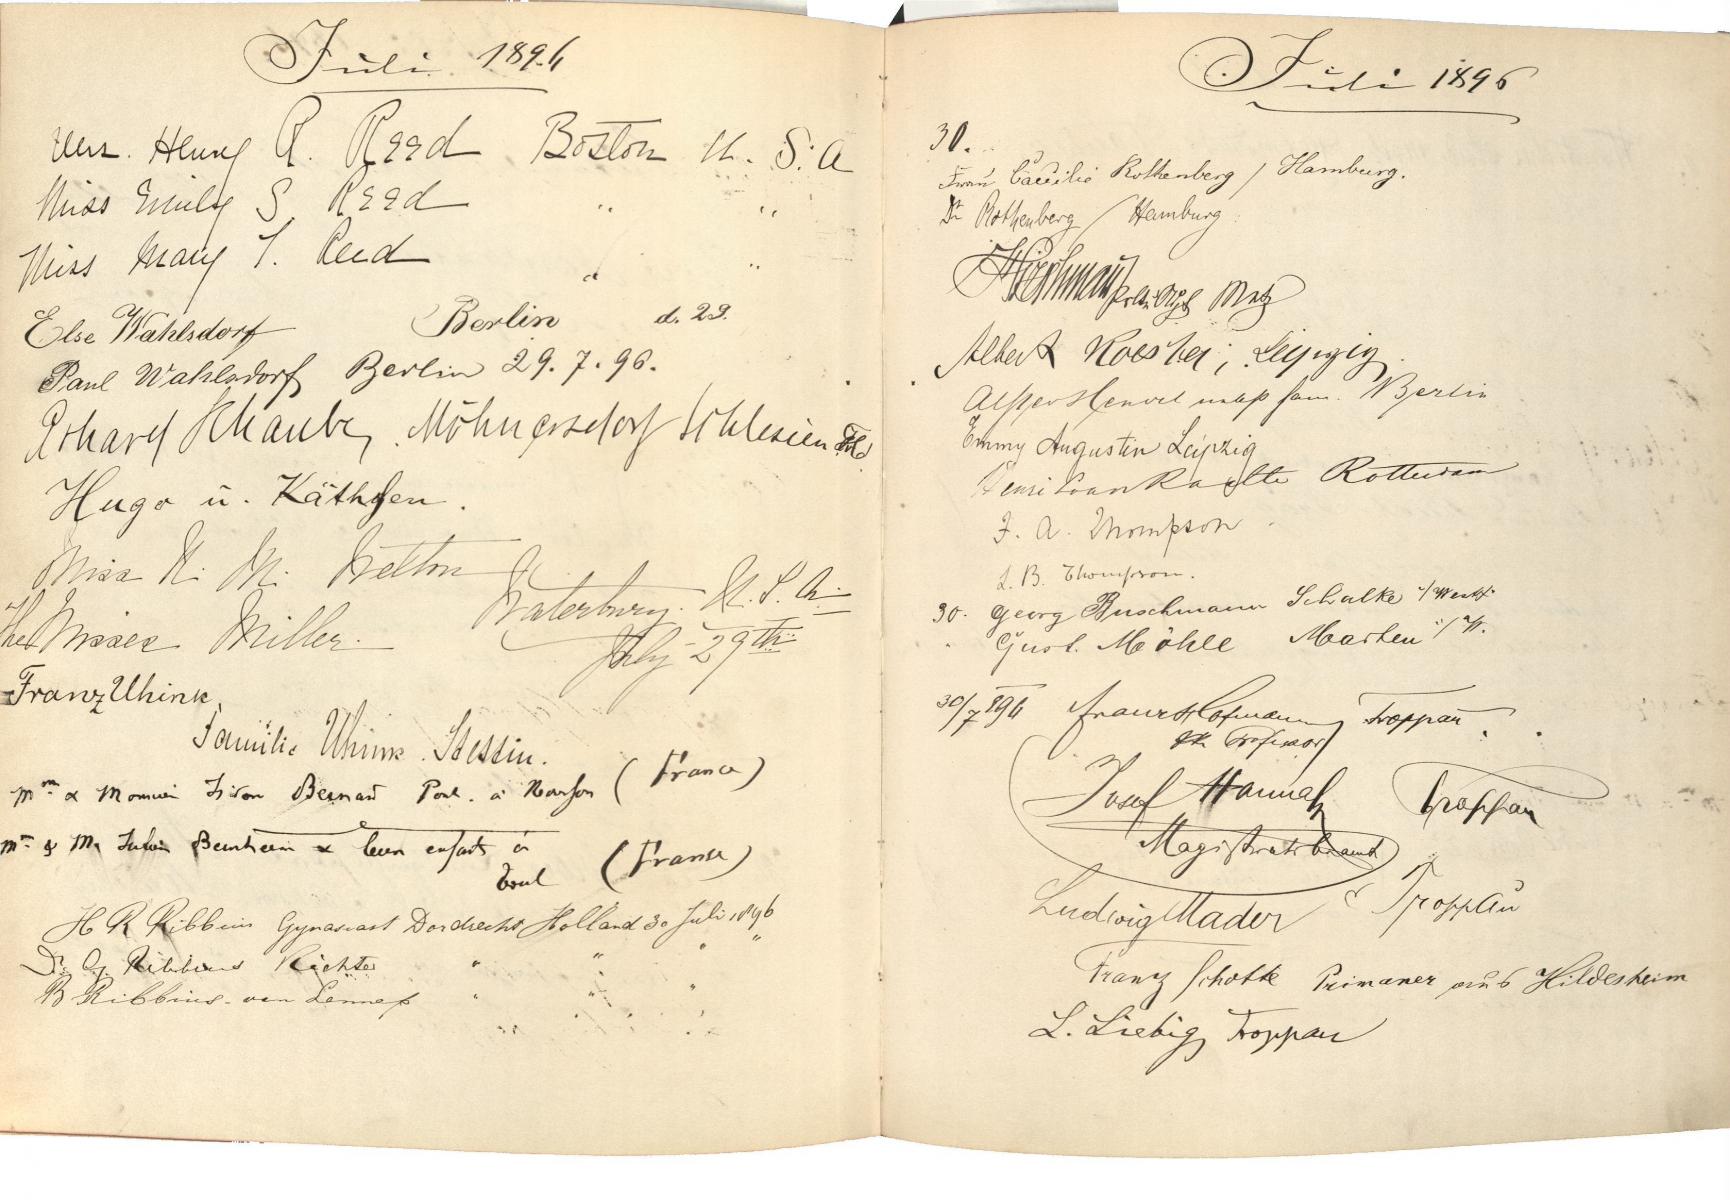 Juli 1896
Mrs. Henry R. Reed Boston U. S. A
Miss Emily S. Reed " "
Miss Mary S. Reed " "
Else Wahlsdorf Berlin d. 29.
Paul Wahlsdorf Berlin 29.7.96.
Erhard Schaube, Möhnersdorf Schlesien
Hugo u. Käthchen.
Miss K. M. Welton
Waterbury. U. S. A.
The Misses Miller.
July 29th
Franz Uhink,
Familie Uhink. Stettin.
Mme & Monsieur Bernard (France)
Mme & M. Bernheim & leurs enfants à
Toul (France)
H R Ribbius Gymnasiast Dordrecht Holland 30 Juli 1896
Dr. G. Ribbius Richter " " " "
B Ribbius-van Lennep " " "
Juli 1896
30.
Frau Cäcilie Rothenberg / Hamburg.
Dr Rothenberg / Hamburg.
Hirschmann Metz
Albert Koester, Leipzig.
Berlin
Emmy Augustin Leipzig
Henri van Raalte Rotterdam
F. A. Thompson
L. B. Thompson.
30. Georg Buschmann Schalke i/Westf.
" Gust. Möhle Marten i/W.
30/7 896 Franz Hofmann Troppau.
Professor
Josef Hannak Troppau
Magistratsbeamt
Ludwig Mader Troppau
Franz Schotte Primaner aus Hildesheim
L. Liebig Troppau